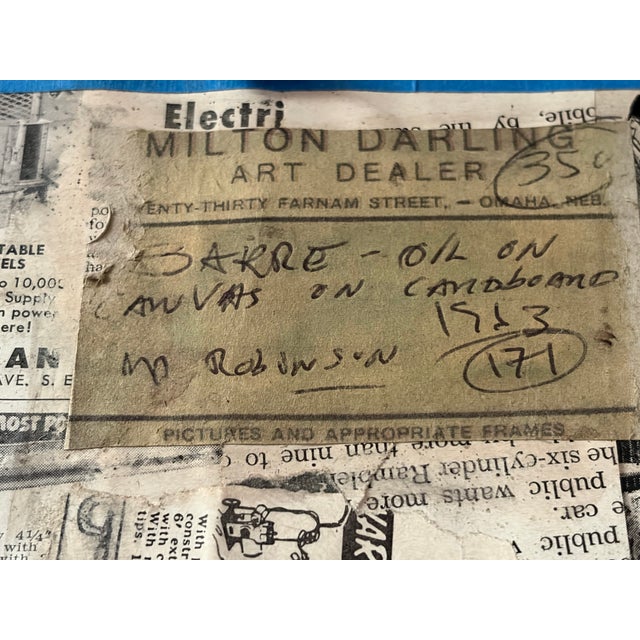 Electri
MILTON DARLING
ART DEALER
350
ENTY-THIRTY FARNAM STREET, – OMAHA, NEB.
BARRE – OIL ON
CANVAS ON CARDBOARD
1953
ROBINSON
171
PICTURES AND APPROPRIATE FRAMES
obile, by the
TABLE
ELS
o 10,000
Supply
n power
ere!
AN
AVE. S. E
MOST PO
po
fo
ha
more than nine to
he six-cylinder Rambler
public wants more
e car.
public
4¼"
with
with
5
With
constr
6' ext
with c
With
tips.
WAR